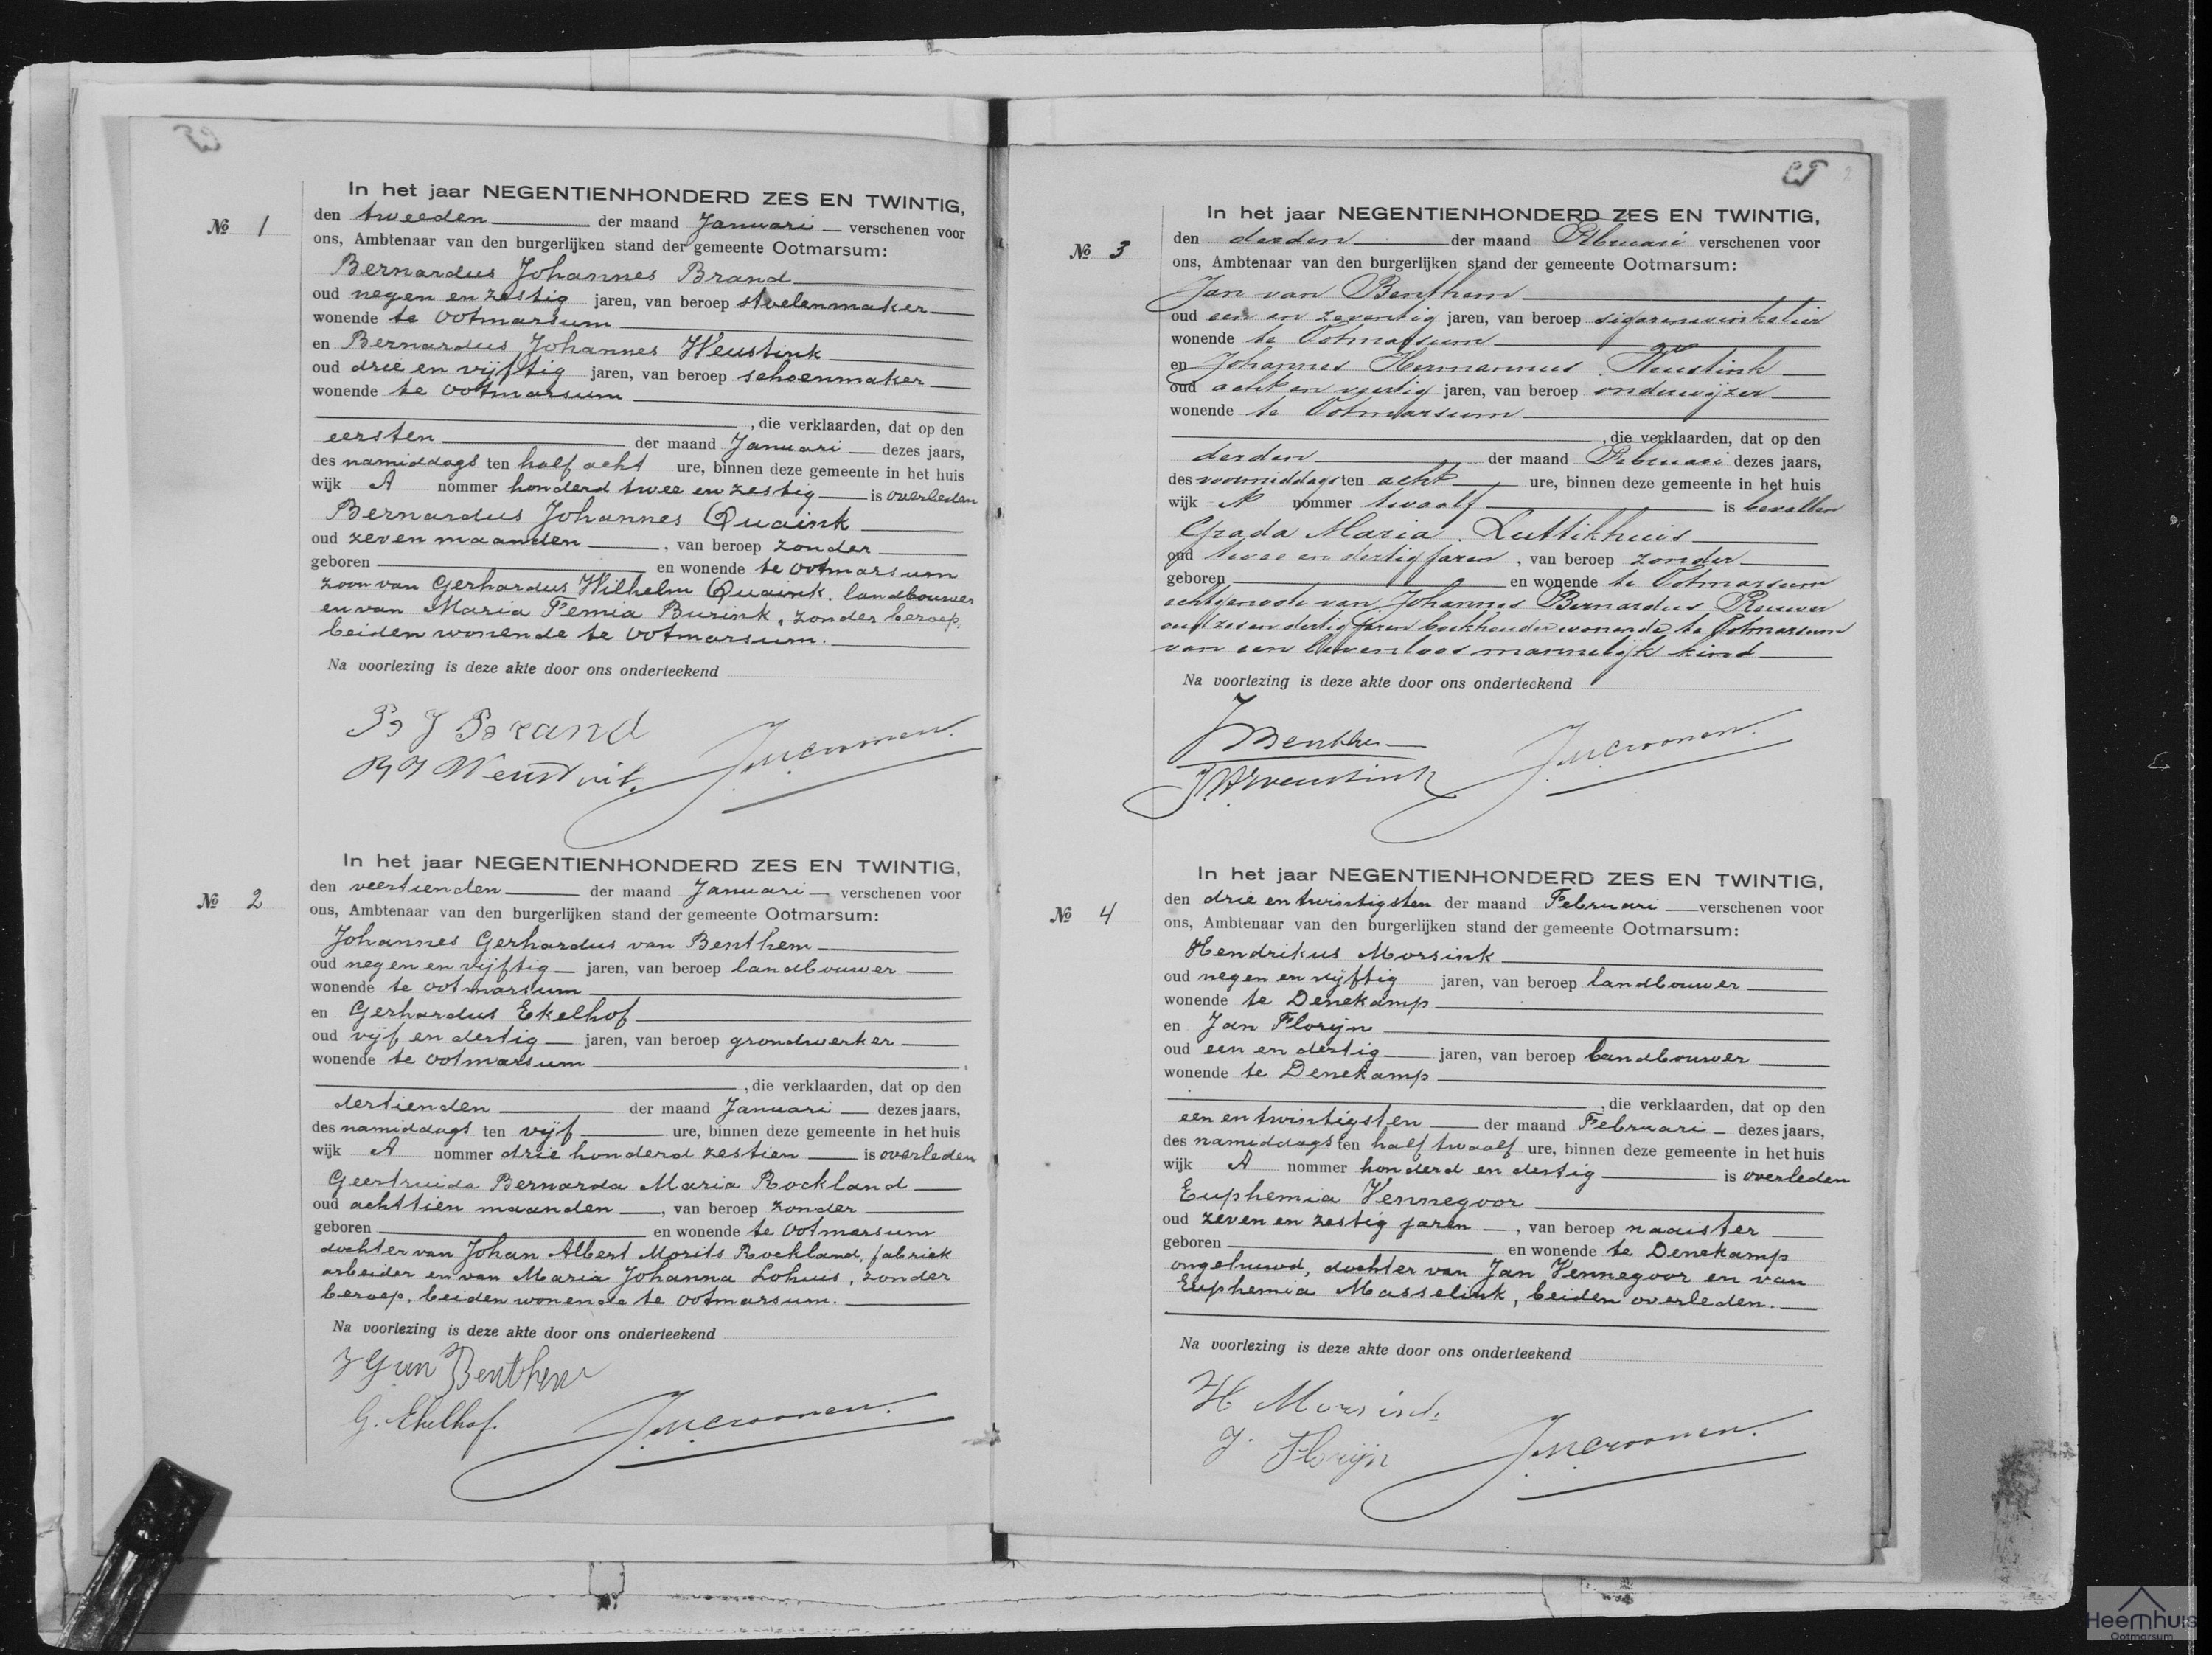 In het jaar NEGENTIENHONDERD ZES EN TWINTIG,
№ 1
den tweeden der maand Januari verschenen voor
ons, Ambtenaar van den burgerlijken stand der gemeente Ootmarsum:
Bernardus Johannes Brand
oud negen en zestig jaren, van beroep stoelenmaker
wonende te Ootmarsum
en Bernardus Johannes Weustink
oud drie en vijftig jaren, van beroep schoenmaker
wonende te Ootmarsum
, die verklaarden, dat op den
eersten der maand Januari dezes jaars,
des namiddags ten half acht ure, binnen deze gemeente in het huis
wijk A nommer honderd twee en zestig is overleden
Bernardus Johannes Quaink
oud zeven maanden, van beroep zonder
geboren en wonende te Ootmarsum
zoon van Gerhardus Wilhelm Quaink, landbouwer
en van Maria Femia Burink, zonder beroep,
beiden wonende te Ootmarsum.
Na voorlezing is deze akte door ons onderteekend
B J Brand
B J Weustink.
In het jaar NEGENTIENHONDERD ZES EN TWINTIG,
№ 2
den veertienden der maand Januari verschenen voor
ons, Ambtenaar van den burgerlijken stand der gemeente Ootmarsum:
Johannes Gerhardus van Benthem
oud negen en vijftig jaren, van beroep landbouwer
wonende te Ootmarsum
en Gerhardus Ekelhof
oud vijf en dertig jaren, van beroep grondwerker
wonende te Ootmarsum
, die verklaarden, dat op den
dertienden der maand Januari dezes jaars,
des namiddags ten vijf ure, binnen deze gemeente in het huis
wijk A nommer drie honderd zestien is overleden
Geertruida Bernarda Maria Rockland
oud achttien maanden, van beroep zonder
geboren en wonende te Ootmarsum
dochter van Johan Albert Morits Rockland, fabriek
arbeider en van Maria Johanna Lohuis, zonder
beroep, beiden wonende te Ootmarsum.
Na voorlezing is deze akte door ons onderteekend
J G van Benthem
G. Ekelhof.
In het jaar NEGENTIENHONDERD ZES EN TWINTIG,
№ 3
den derden der maand Februari verschenen voor
ons, Ambtenaar van den burgerlijken stand der gemeente Ootmarsum:
Jan van Benthem
oud een en zeventig jaren, van beroep sigarenwinkelier
wonende te Ootmarsum
en Johannes Hermannus Weustink
oud acht en veertig jaren, van beroep onderwijzer
wonende te Ootmarsum
, die verklaarden, dat op den
derden der maand Februari dezes jaars,
des voormiddags ten acht ure, binnen deze gemeente in het huis
wijk A nommer twaalf is bevallen
Grada Maria Luttikhuis
oud twee en dertig jaren, van beroep zonder
geboren en wonende te Ootmarsum
echtgenoote van Johannes Bernardus Reuver
oud zes en dertig jaren boekhouder wonende te Ootmarsum
van een levenloos mannelijk kind
Na voorlezing is deze akte door ons onderteekend
J Benthem
J. H Weustink
In het jaar NEGENTIENHONDERD ZES EN TWINTIG,
№ 4
den drie en twintigsten der maand Februari verschenen voor
ons, Ambtenaar van den burgerlijken stand der gemeente Ootmarsum:
Hendrikus Morsink
oud negen en vijftig jaren, van beroep landbouwer
wonende te Denekamp
en Jan Florijn
oud een en dertig jaren, van beroep landbouwer
wonende te Denekamp
, die verklaarden, dat op den
een en twintigsten der maand Februari dezes jaars,
des namiddags ten half twaalf ure, binnen deze gemeente in het huis
wijk A nommer honderd en dertig is overleden
Euphemia Vennegoor
oud zeven en zestig jaren, van beroep naaister
geboren en wonende te Denekamp
ongehuwd, dochter van Jan Vennegoor en van
Euphemia Masselink, beiden overleden.
Na voorlezing is deze akte door ons onderteekend
H Morsink
J. Florijn
Heemhuis
Ootmarsum